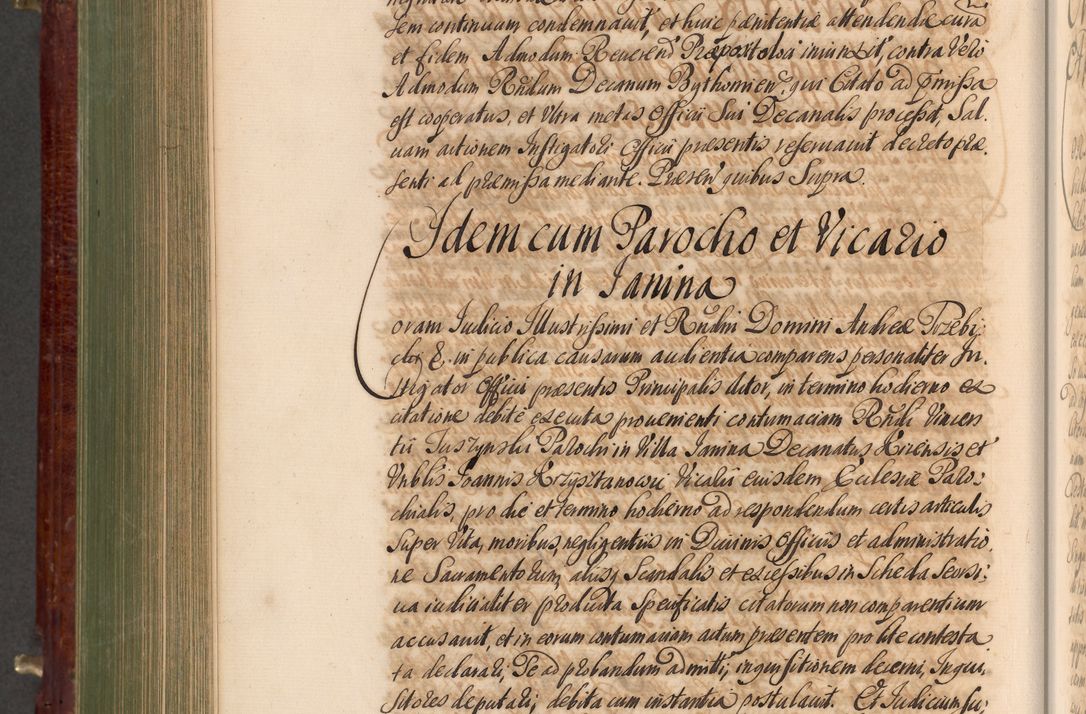 sem continuum condemnauit, et huic pænitentiæ attendendæ curã
et fidem Admodum Reuerend Præpositoloi iniunxit, contra Vero
Admodum Rñdum Decanum Bythomien̄. qui Citato ad p̄missa
est cooperatus, et Vltra metas Officii Sui Decanalis processit, Sal-
uam actionem Instigatori Officii præsentis reseruauit decreto præ-
senti ad præmissa mediante. Præsen̄ quibus Supra.
Idem cum Parocho et Vicario
in Janina
oram Iudicio Illustrissimi et Rñdmi Domini Andreæ Trzebi-
cki &. in publica causarum audientia comparens personaliter In-
stigator Officii præsentis Principalis Actor, in termino hodierno ex
citatione debite executa prouenienti contumaciam Rñdi Vincen
tii Tuszynski Parochi in Villa Janina Decanatus Kijensis et
Vnblis Joannis Krzysztanowic Vicarii eiusdem Ecclesiæ Paro-
chialis, pro die et termino hodierno ad respondendum certis articulis
Super Vita, moribus, negligentiis in Diuinis Officiis et administratio-
ne Sacramentorum, aliisq Scandalis et excessibus in Scheda Seorsi-
ua iudicialiter producta Specificatis citatorum non comparentium
accusauit, et in eorum contumaciam actum præsentem pro lite contesta
ta declarari; Se ad probandum admitti, inquisitionem decerni, Inqui-
sitores deputari, debita cum instantia postulauit. Et Iudicium su-